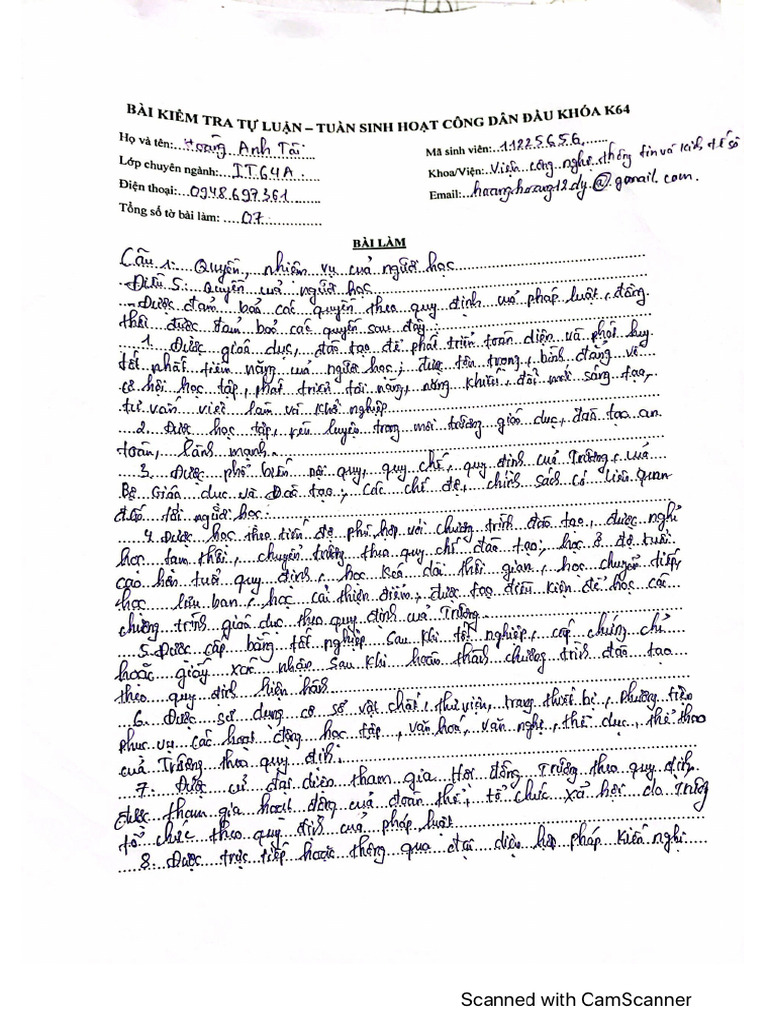 BÀI KIỂM TRA TỰ LUẬN – TUẦN SINH HOẠT CÔNG DÂN ĐẦU KHÓA K64
Họ và tên: Hoàng Anh Tài
Mã sinh viên: 11225656
Lớp chuyên ngành: IT64A
Khoa/Viện: Viện công nghệ thông tin và kinh tế số
Điện thoại: 0948697361
Email: hoanghoang12.dy@gmail.com.
Tổng số tờ bài làm: 07
BÀI LÀM
Câu 1: Quyền, nhiệm vụ của người học
- Điều 5: Quyền của người học
- Được đảm bảo các quyền theo quy định của pháp luật, đồng
thời được đảm bảo các quyền sau đây:
1. Được giáo dục, đào tạo để phát triển toàn diện và phát huy
tốt nhất tiềm năng của người học; được tôn trọng, bình đẳng về
cơ hội học tập, phát triển tài năng, năng khiếu, đổi mới sáng tạo,
tư vấn việc làm và khởi nghiệp
2. Được học tập, rèn luyện trong môi trường giáo dục, đào tạo an
toàn, lành mạnh.
3. Được phổ biến nội quy, quy chế, quy định của Trường, của
Bộ Giáo dục và Đào tạo; các chế độ, chính sách có liên quan
đến tới người học:
4. Được học theo tiến độ phù hợp với chương trình đào tạo, được nghỉ
học tạm thời, chuyển trường theo quy chế đào tạo; học ở độ tuổi
cao hơn tuổi quy định, học kéo dài thời gian, học chuyển tiếp,
học lưu ban, học cải thiện điểm, được tạo điều kiện để học các
chương trình giáo dục theo quy định của Trường
5. Được cấp bằng tốt nghiệp sau khi tốt nghiệp, cấp chứng chỉ
hoặc giấy xác nhận sau khi hoàn thành chương trình đào tạo
theo quy định hiện hành
6. Được sử dụng cơ sở vật chất, thư viện, trang thiết bị, phương tiện
phục vụ các hoạt động học tập, văn hoá, văn nghệ, thể dục, thể thao
của Trường theo quy định.
7. Được cử đại diện tham gia Hội đồng Trường theo quy định.
được tham gia hoạt động của đoàn thể, tổ chức xã hội do Trường
tổ chức theo quy định của pháp luật
8. Được trực tiếp hoặc thông qua đại diện hợp pháp kiến nghị
Scanned with CamScanner